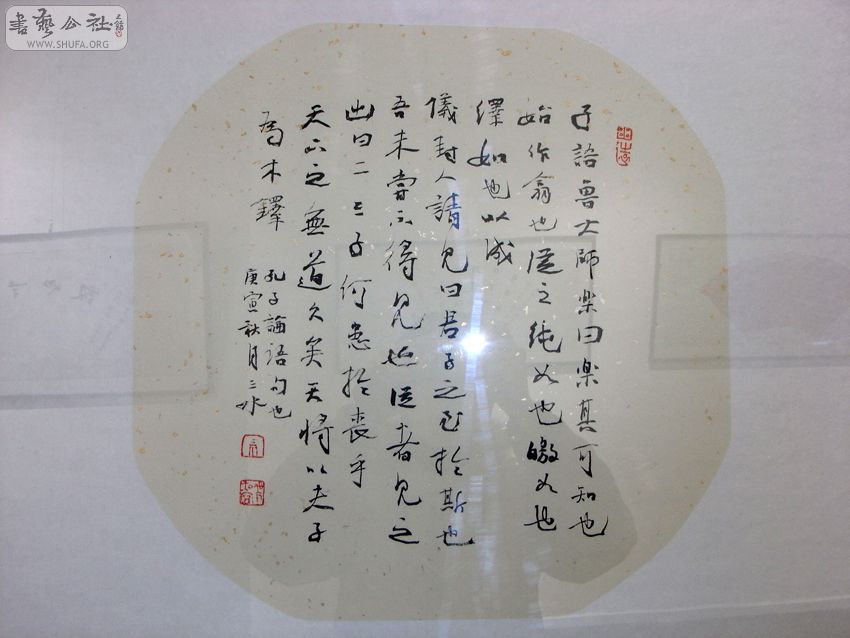 書藝公社
WWW.SHUFA.ORG
子語魯大師楽曰楽其可知也
始作翕也從之純如也皦如也
繹如也以成
儀封人請見曰君子之至於斯也
吾未嘗不得見也從者見之
出曰二三子何患於喪乎
天下之無道久矣天將以夫子
為木鐸
孔子論語句也
庚寅秋月三水